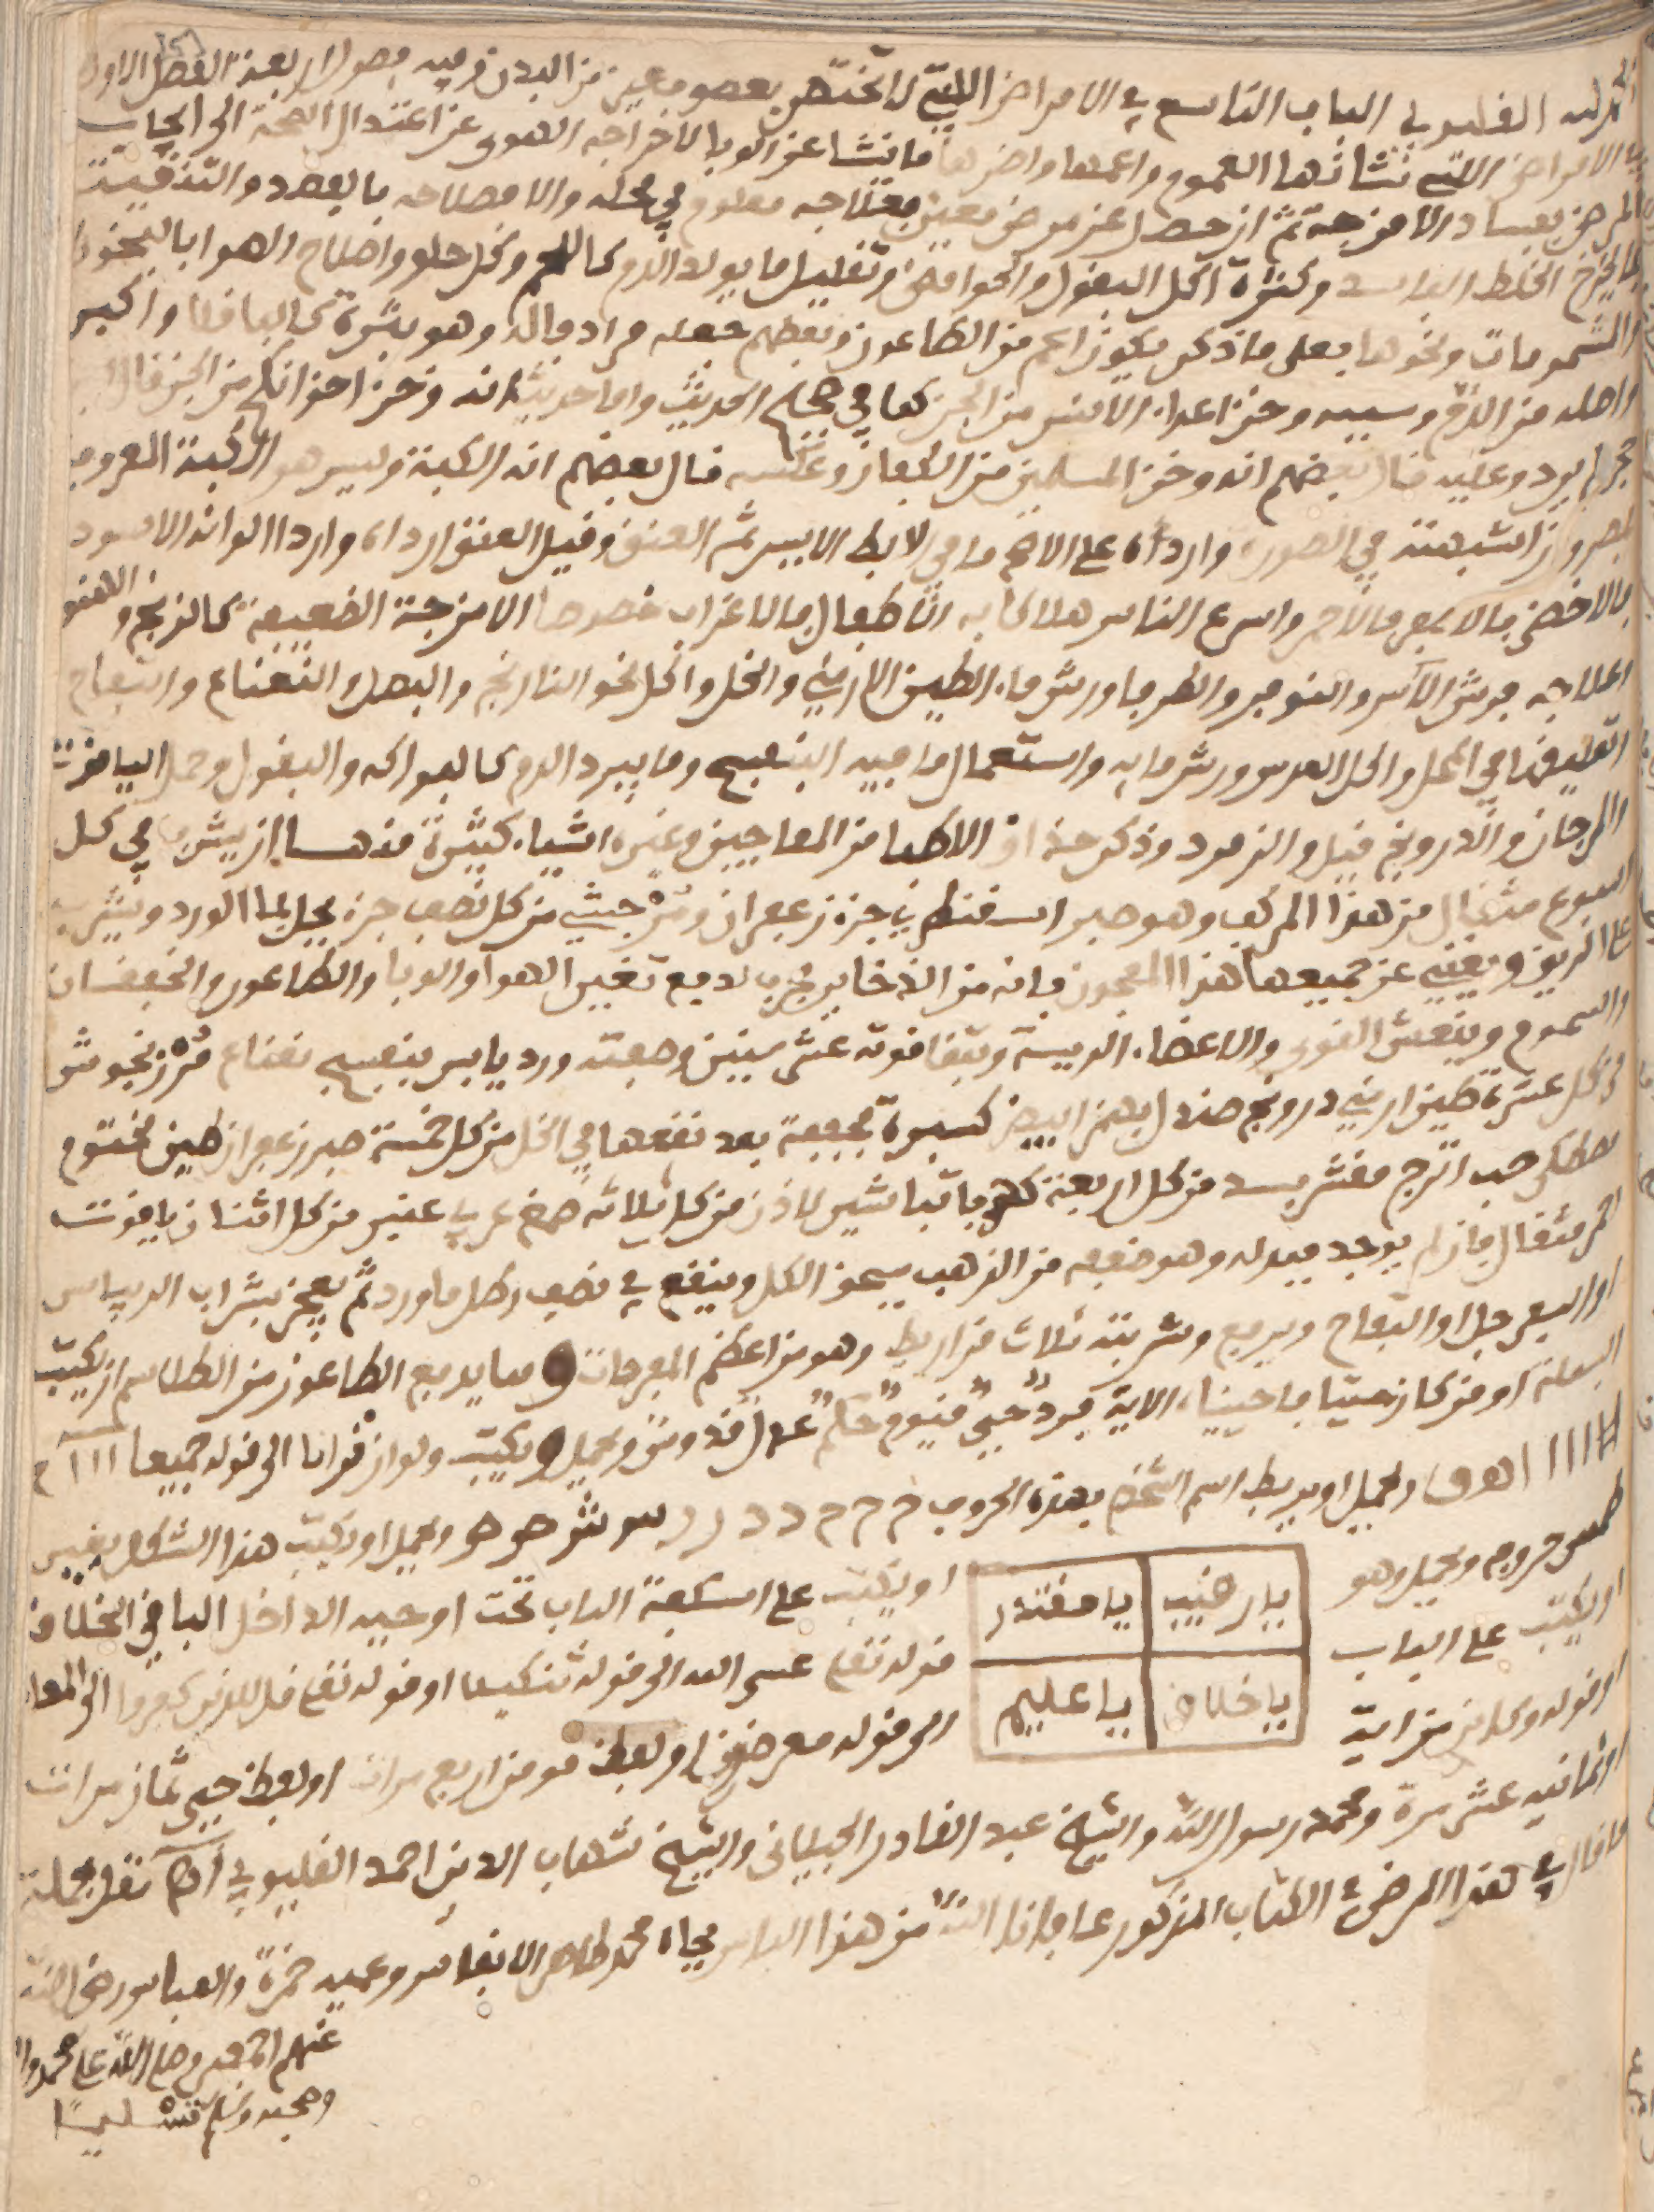 القليوبي الباب التاسع في الامراض التي لا تختص بعضو معين من البدن وفيه فصول اربعة الفصل الاول
الامراض التي شانها العموم واعمها واضرها ما ينشا عن الوبا لاخراجه الهوى عن اعتدال الصحة الى ايجاب
المرض بفساد الامزجة ثم ان حصل عنه مرض معين فعلاجه معلوم في محله والا فصلاحه بالفصد والتنقية
بما يخرج الخلط الفاسد وكثرة اكل البقول والحوامض وتقليل ما يولد الدم كاللحم وكل حلو واصلاح الهوا بالبخور
والشمومات ونحوها فعلى ما ذكر يكون اعم من الطاعون وبعضهم جعله مرادفا له وهو بثرة كالباقلا واكبر
واصله من الدم وسببه وخز اعداء الانس من الجن كما في صحيح الحديث واما حديث انه وخز اخوانكم من الجن قال ابن
حجر لم يرد وعليه قال بعضهم انه وخز المسلمين من الكفار وعكسه قال بعضهم انه الكبة وليس هو الكبة المعروفة
بمصر وان اشبهته في الصورة وارداه على الاصح ما في الابط الايسر ثم العنق وقيل العنق ارداه واردا الوانه الاسود
فالاخضر فالاصفر فالاحمر واسرع الناس هلاكا به الاطفال فالاغراب خصوصا الامزجة الضعيفة كالزنج والهنود
وعلاجه فرش الاس والنوفر والطرفا ورش ماء الطين الارمني والخل واكل نحو النارنج والبصل والنعناع والتفاح
وتعليقها في المحل واكل العدس ورش مائه واستعمال ما فيه البنفسج وما يبرد الدم كالفواكه والبقول وحمل الياقوت
والمرجان والدرونج قيل والزمرد وذكر حذاق الاطبا من المعاجين وغيره اشياء كثيرة منها ان يشرب في كل
اسبوع مثقال من هذا المركب وهو صبر اسقنطري جزء زعفران ومر حبشي من كل نصف جزء يحل بما الورد ويشرب
على الريق ويغني عن جميعها هذا المعجون فانه من الذخاير مجرب لدفع تغيير الهوا والوبا والطاعون والخفقان
والسموم وينعش القوى والاعضاء الريسة وتبقا قوته عشر سنين وصفته ورد يابس بنفسج نعناع مرزنجوش
من كل عشرة طين ارمني درونج صندل بهمن ابيض كسبرة مجففة بعد نقعها في الخل من كل خمسة صبر زعفران طين مختوم
مصطكى حب اترج مقشر بسد من كل اربعة كهربا تباشير لاذن من كل ثلاثة صمغ عربي عنبر من كل اثنان ياقوت
احمر مثقال فان لم يوجد فبدله وهو ضعفه من الذهب يسحق الكل وينقع في نصف رطل ماورد ثم يعجن بشراب الريباس
او السفرجل او التفاح ويرفع وشربته ثلاث قراريط وهو من اعظم المفرحات ومما يدفع الطاعون من الطلاسم ان يكتب
البسملة او من كان ميتا فاحييناه الاية فرد حي قيوم حكم عدل قدوس ويحمل ويكتب ولو ان قرانا الى قوله جميعا
ويحمل او يربط اسم الشخص بهذه الحروف
ويحمل او يكتب هذا الشكل بغير
طمس حروفه ويحمل وهو
يا رقيب يا مقتدر
يا خلاق يا عليم
او يكتب على اسكفة الباب تحت او حيه الداخل الباقي الخلاق
او يكتب على الباب
قوله تعالى عسى الله الى قوله تنكيلا او قوله تعالى قل للذين كفروا الى المهاد
او قوله وكاين من اية
الى قوله معرضون او لفظ مومن اربع مرات او لفظ حي ثمان مرات
او ثمانية عشر مرة ومحمد رسول الله والشيخ عبد القادر الجيلاني والشيخ شهاب الدين احمد القليوبي اهـ نقل بجملة
ما قال في هذا المرض في الكتاب المذكور عافانا الله من هذا الباس بجاه محمد طاهر الانفاس وعميه حمزة والعباس رضي الله
عنهم اجمعين وصلى الله على محمد واله
وصحبه وسلم تسليما